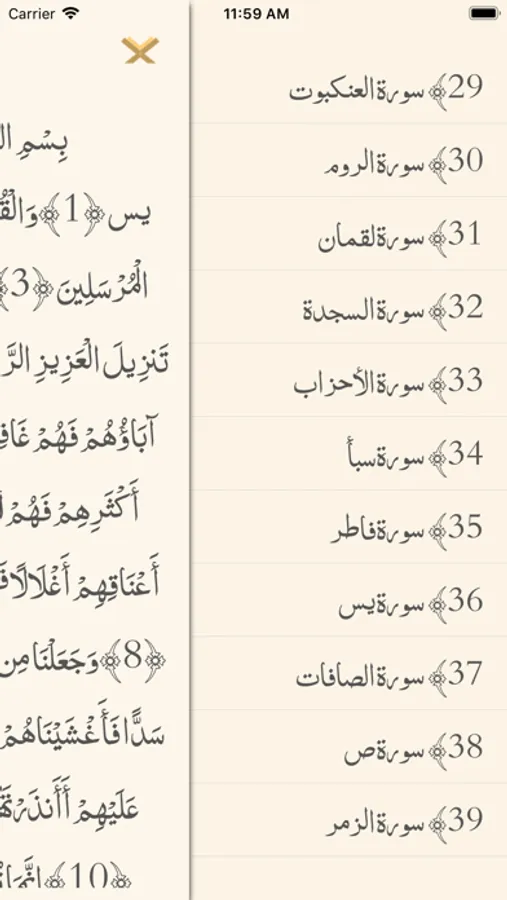 Carrier 11:59 AM
29﴾ سورة العنكبوت
30﴾ سورة الروم
31﴾ سورة لقمان
32﴾ سورة السجدة
33﴾ سورة الأحزاب
34﴾ سورة سبأ
35﴾ سورة فاطر
36﴾ سورة يس
37﴾ سورة الصافات
38﴾ سورة ص
39﴾ سورة الزمر
بِسْمِ
يس ﴿1﴾
الْمُرْسَلِينَ ﴿3﴾
تَنزِيلَ الْعَزِيزِ
آبَاؤُهُمْ فَهُمْ
أَكْثَرِهِمْ فَهُمْ
أَعْنَاقِهِمْ أَغْلَالًا
﴿8﴾ وَجَعَلْنَا مِن
سَدًّا فَأَغْشَيْنَاهُمْ
عَلَيْهِمْ
﴿10﴾ إِنَّمَا